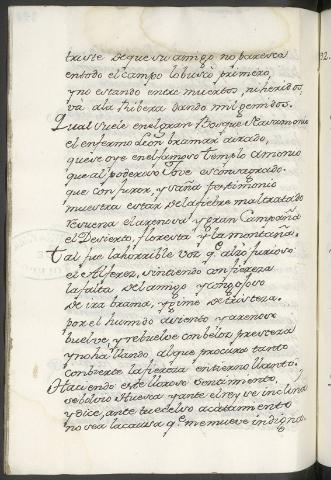 triste de que su amigo no paresca
en todo el campo lo buscó primero,
y no estando entre muertos, ni heridos,
va a la ribera dando mil gemidos.
Qual suele en el gran Bosque
el enfermo León bramar airado,
que se oye en el famoso templo Amonio
que al poderoso Jove es consagrado.
que con furor, y saña testimonio
muestra estar de la fiebre maltratado
resuena el arenosa y gran Campaña
el Desierto, floresta y la montaña.
Tal fue la horrible voz q.e alzó furioso
el Alferez, sintiendo con fiereza
la falta del amigo y congojoso
de ira brama, y gime de tristeza.
por el humido asiento y arenoso
buelve, y rebuelve con beloz presteza
y no hallando, al que procura tanto
combierte la fiereza en tierno llanto.
Haciendo este lloroso sentimiento,
se bolvio Huesca y ante el rey se inclina
y dice, ante tu excelso acatamiento
no sea la causa q.e me mueve indigna.